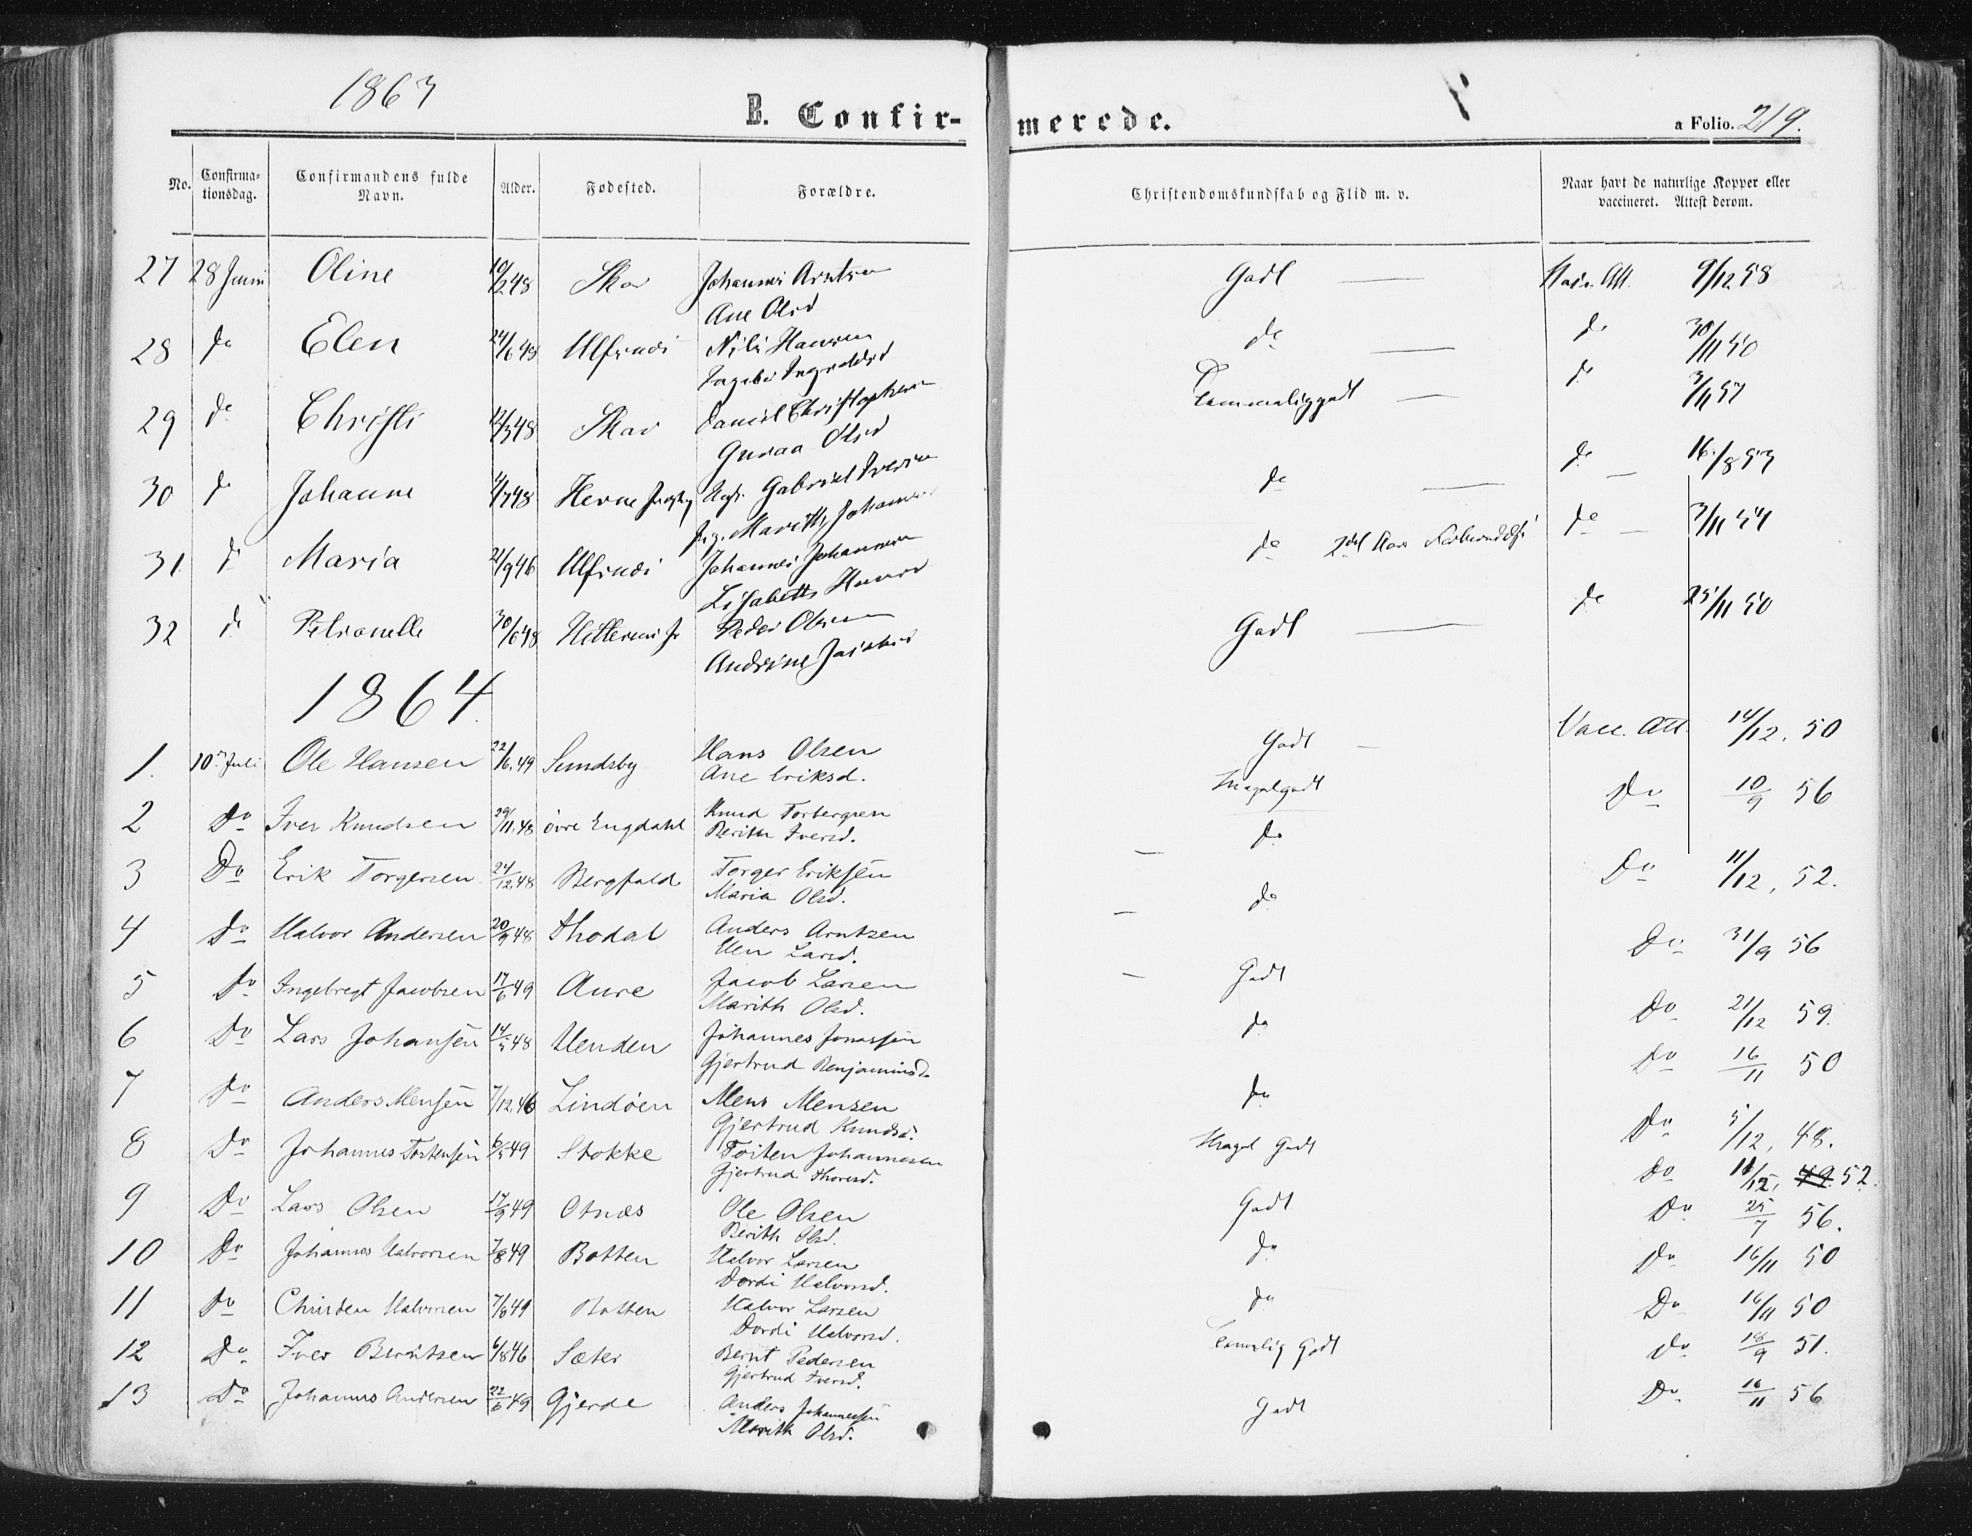 1863
B. Confir-
merede.
a Folio. 219.
No. Confirma-tionsdag. Confirmandens fulde Navn. Alder. Fødested. Forældre. Christendomskundskab og Flid m. v. Naar havt de naturlige Kopper eller vaccineret. Attest derom.
27 28 Juni Oline 10/2 48 Skar Johannes Arntsen Godt — Att. 9/12 58
Ane Olsd
28 do Elen 24/6 48 Ulfsnæs Nils Hansen do — do 30/11 50
29 do Christi 12/3 48 Skar Daniel Christophersen Temmeliggodt — do 3/11 57
Guroa Olsd
30 do Johanne 4/7 48 Hevne Gabriel Iversen do — do 16/8 53
Marith Johannesd
31 do Maria 21/9 46 Ulfsnæs Johannes Johannesen do 2det Aars do — 3/11 54
Lisabeth Hansd
32 do Petronelle 30/6 48 Hitteren Peder Olsen Godt — do 25/11 50
Andrine Jacobsd
1864.
1. 10de Juli Ole Hansen 22/6.49 Sundsby Hans Olsen Godt — Vacc. Att. 14/12. 50
Ane Eriksd.
2 Do Iver Knudsen 29/11.48 øvre Engdahl Knud Torbergsen Megetgodt Do 10/9 56
Berith Iversd.
3 Do Erik Torgersen 24/12.48 Bergfald Torger Eriksen — do Do 11/12, 52.
Maria Olsd.
4 Do Halvor Andersen 20/9 48 Thodal Anders Arntzen — do Do 31/9 56
Elen Larsd.
5 Do Ingebregt Jacobsen 17/6 49 Aure Jacob Larsen — Godt Do 21/12 59.
Marith Olsd.
6 Do Lars Johansen 14/5 48 Uenden Johannes Jonassen do Do 16/11 50
Gjertrud Benjaminsd.
7 Do Anders Mensen 7/12.46 Lindøen Mens Mensen do Do 5/12, 48.
Gjertrud Knudsd.
8 Do Johannes Tostensen 6/5 49 Stokke Tosten Johannesen Meget Godt Do 11/12, 49. 52.
Gjertrud Thoresd.
9 Do Lars Olsen 17/9 49 Otnæs Ole Olsen Godt Do 25/7 56.
Berith Olsd.
10 Do Johannes Halvorsen 7/8 49 Botten Halvor Larsen do Do 16/11 50
Dordi Halvorsd.
11 Do Christen Halvorsen 7/8 49 Botten Halvor Larsen do Do 16/11 50
Dordi Halvorsd.
12 Do Iver Berntsen 6/8 46 Sæter Bernt Pedersen Temmelig Godt Do 18/9 51.
Gjertrud Iversd.
13 Do Johannes Andersen 22/6 49 Gjerde Anders Johannessen Godt Do 16/11 56
Marith Olsd.